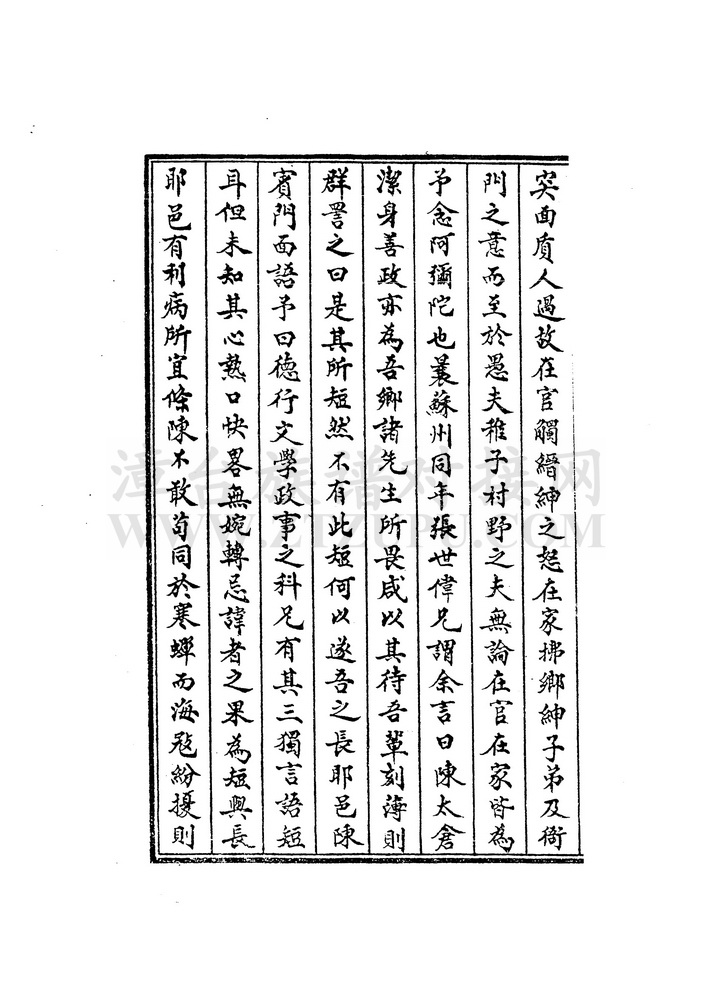 突面質人過故在官觸縉紳之怒在家拂鄉紳子弟及衙
門之意而至於愚夫稚子村野之夫無論在官在家皆為
予念阿彌陀也曩蘇州同年張世偉兄謂余言曰陳太倉
潔身善政亦為吾鄉諸先生所畏咸以其待吾輩刻薄則
群詈之曰是其所短然不有此短何以遂吾之長耶邑陳
賓門面語予曰德行文學政事之科兄有其三獨言語短
耳但未知其心熱口快畧無婉轉忌諱者之果為短與長
耶邑有利病所宜條陳不敢苟同於寒蟬而海寇紛擾則
漳台族譜对接网
WWW.ZTZUPU.COM